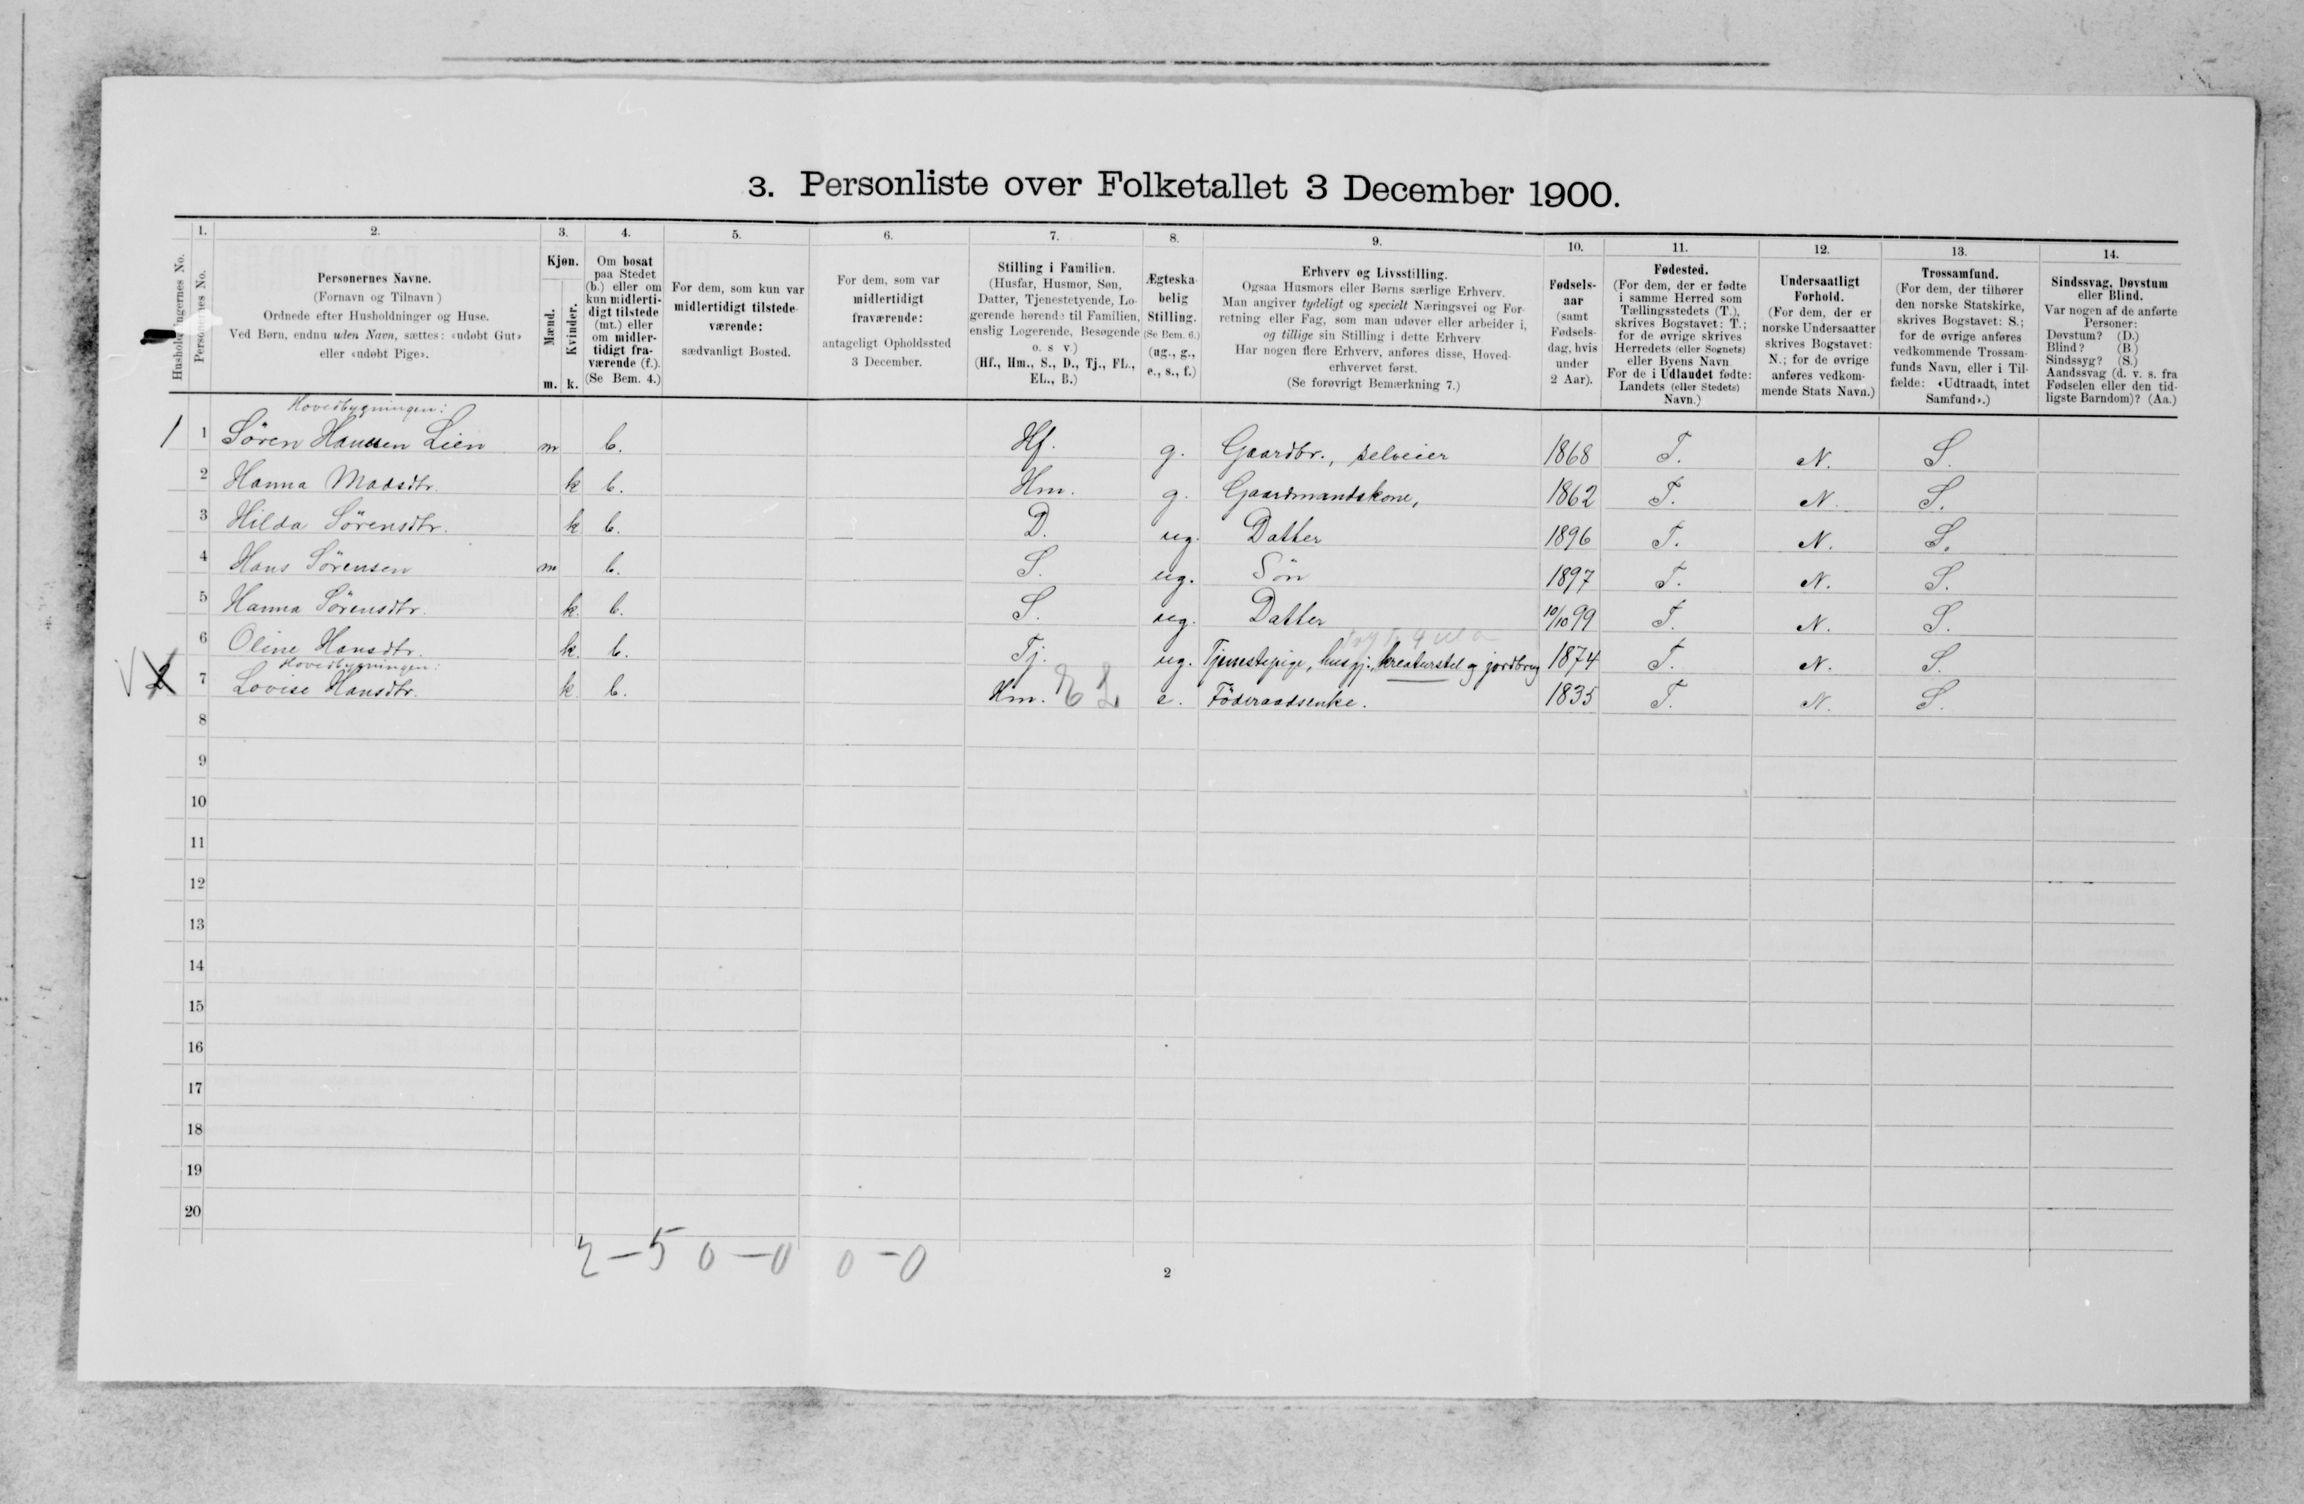 3. Personliste over Folketallet 3 December 1900.
Husholdningernes No.
1.
Personernes No.
2.
Personernes Navne.
(Fornavn og Tilnavn)
Ordnede efter Husholdninger og Huse.
Ved Børn, endnu uden Navn, sættes: «udøbt Gut»
eller «udøbt Pige».
3.
Kjøn.
Mænd.
Kvinder.
m. k.
4.
Om bosat
paa Stedet
(b.) eller om
kun midlerti-
digt tilstede
(mt.) eller
om midler-
tidigt fra-
værende (f.).
(Se Bem. 4.)
5.
For dem, som kun var
midlertidigt tilstede-
værende:
sædvanligt Bosted.
6.
For dem, som var
midlertidigt
fraværende:
antageligt Opholdssted
3 December.
7.
Stilling i Familien.
(Husfar, Husmor, Søn,
Datter, Tjenestetyende, Lo-
gerende hørende til Familien,
enslig Logerende, Besøgende
o. s. v.)
(Hf., Hm., S., D., Tj., FL.,
EL., B.)
8.
Ægteska-
belig
Stilling.
(Se Bem. 6.)
(ug., g.,
e., s., f.)
9.
Erhverv og Livsstilling.
Ogsaa Husmors eller Børns særlige Erhverv.
Man angiver tydeligt og specielt Næringsvei og For-
retning eller Fag, som man udøver eller arbeider i,
og tillige sin Stilling i dette Erhverv
Har nogen flere Erhverv, anføres disse, Hoved-
erhvervet først.
(Se forøvrigt Bemærkning 7.)
10.
Fødsels-
aar
(samt
Fødsels-
dag, hvis
under
2 Aar).
11.
Fødested.
(For dem, der er fødte
i samme Herred som
Tællingsstedets (T.),
skrives Bogstavet: T.;
for de øvrige skrives
Herredets (eller Sognets)
eller Byens Navn
For de i Udlandet fødte:
Landets (eller Stedets)
Navn.)
12.
Undersaatligt
Forhold.
(For dem, der er
norske Undersaatter
skrives Bogstavet:
N.; for de øvrige
anføres vedkom-
mende Stats Navn.)
13.
Trossamfund.
(For dem, der tilhører
den norske Statskirke,
skrives Bogstavet: S.;
for de øvrige anføres
vedkommende Trossam-
funds Navn, eller i Til-
fælde: «Udtraadt, intet
Samfund».)
14.
Sindssvag, Døvstum
eller Blind.
Var nogen af de anførte
Personer:
Døvstum? (D.)
Blind? (B)
Sindssyg? (S.)
Aandssvag (d. v. s. fra
Fødselen eller den tid-
ligste Barndom)? (Aa.)
Hovedbygningen:
1 1 Sören Hansen Lien m b. Hf. g. Gaardbr., selveier 1868 T. N. S.
2 Hanna Madsdtr. k b. Hm. g. Gaardmandskone, 1862 T. N. S.
3 Hilda Sörensdtr. k b. D. ug. Datter 1896 T. N. S.
4 Hans Sörensen m b. S. ug. Sön 1897 T. N. S.
5 Hanna Sörensdtr. k. b. S. ug. Datter 10/10 99 T. N. S.
6 Oline Hansdtr. k. b. Tj. ug. Tjenestepige, husgj., kreaturstel og jordbrug 1874 T. N. S.
Hovedbygningen:
2 7 Lovise Hansdtr. k b. Hm. EL e. Föderaadsenke. 1835 T. N. S.
8
9
10
11
12
13
14
15
16
17
18
19
20
2 – 5 0 – 0 0 – 0
2